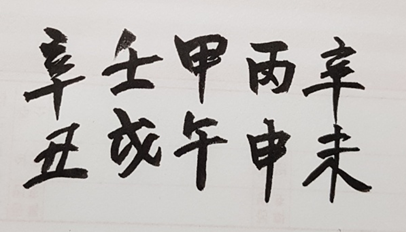 辛壬甲丙辛
丑戌午申未